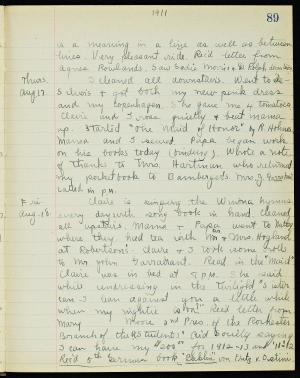 1911
89
is a meaning in a line as well as between
lines. Very pleasant ride. Rec'd letter from
Agnes Rowlands. Saw Sadie Morris & Ralph
Thurs. I cleaned all downstairs. Went to
Aug 17. Lewis & got both my new pink dress
and my Copenhagen. She gave me 4 tomatoes.
Claire and I rose quietly & beat mama
up. Started "The Maid of Honor" by R. Holmes.
Mama and I sewed. Papa began work
on his books today (binding). Wrote a note
of thanks to Mrs. Hartman who returned
my pocketbook to Bamberger's. Mrs. J.
called in p.m.
Fri. Claire is singing the Winona hymns
Aug. 18. every day with song book in hand. Cleaned
all upstairs. Mama & Papa went to
where they had tea with Mr & Mrs Hoyland
at Robertson's. Claire & I took some
to Mr John Garratrant. Read in the "Maid"
Claire was in bed at 7 P.M. She said
while undressing in the twilight "I
can I lean against you a little while
when my nightie is on." Rec'd letter from
Mary Moore and Pres. of the Rochester
Branch of the Students' Aid Society saying
I can have my "$200" for 1912-13 and '11-'12
Rec'd 5th German book, "Ekkle" von Fritz v. Ostini